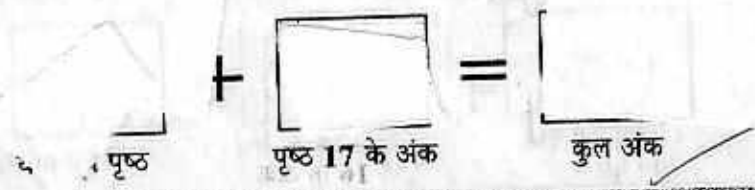 + =
पृष्ठ पृष्ठ 17 के अंक कुल अंक